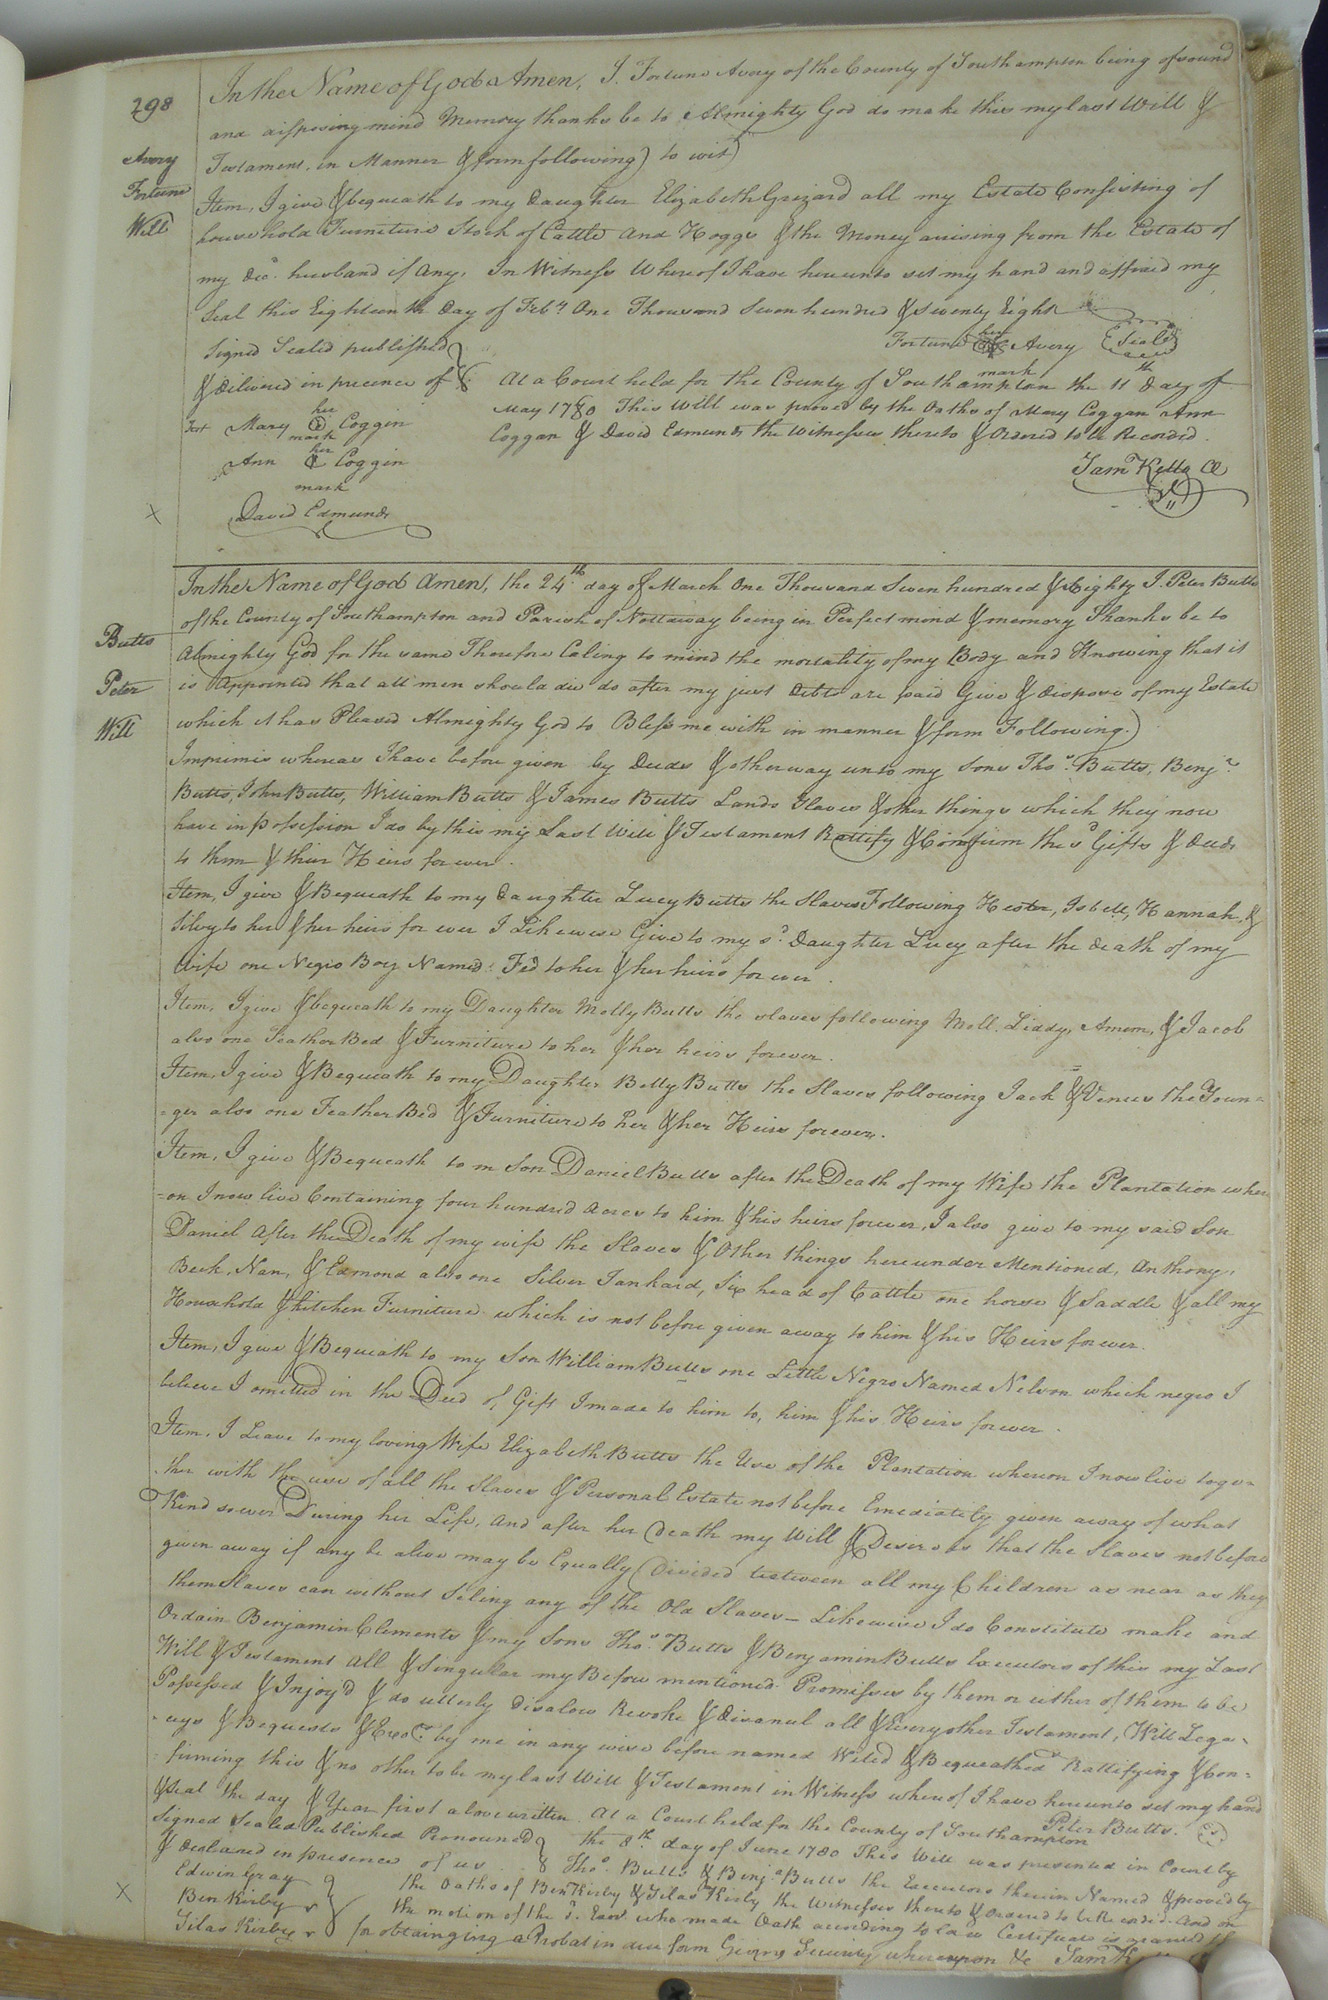 298
In the Name of God Amen, I. Fortune Avery of the County of Southampton being of sound
and disposing mind Memory thanks be to Almighty God do make this my last Will &
Testament, in Manner & form following) to wit)
Avory
Fortune
Will
Item, I give & bequeath to my Daughter Elizabeth Grizard all my Estate Consisting of
household Furniture Stock of Cattle And Hoggs & the Money arising from the Estate of
my Decd. husband if Any. In Witness Whereof I have hereunto set my hand and affixed my
Seal this Eighteenth Day of Feby. One Thousand Seven hundred & Seventy Eight
Signed Sealed published
Fortune her mark Avery Seal
& Delivered in precence of
Test Mary her mark Coggin
Ann her mark Coggin
David Edmunds
At a Court held for the County of Southampton the 11th Day of
May 1780 This Will was proved by the Oaths of Mary Coggan Ann
Coggan & David Edmunds the Witnesses thereto & Ordered to be Recorded.
Saml Kello Cl
Butts
Peter
Will
In the Name of God Amen, the 24th. day of March One Thousand Seven hundred & Eighty I. Peter Butts
of the County of Southampton and Parish of Nottaway being in Perfect mind & memory Thanks be to
Almighty God for the same Therefore Caling to mind the mortality of my Body and Knowing that it
is Appointed that all men should die do after my just Debts are paid Give & dispose of my Estate
which it has Pleased Almighty God to Bless me with in manner & form Following.)
Imprimis whereas I have before given by Deeds & otherway unto my Sons Thos. Butts, Benjn.
Butts, John Butts, William Butts & James Butts Lands Slaves & other things which they now
have in possession I do by this my Last Will & Testament Rattify & Confirm the sd Gifts & Deeds
to them & thier Heirs for ever.
Item, I give & Bequeath to my Daughter Lucy Butts the Slaves Following Hester, Isbell, Hannah, &
Silvy to her & her heirs for ever I Likewise Give to my sd. Daughter Lucy after the death of my
Wife one Negro Boy Named Fed to her & her heirs for ever.
Item, I give & bequeath to my Daughter Molly Butts the slaves following Moll, Liddy, Amem, & Jacob
also one Feather Bed & Furniture to her & her heirs forever.
Item, I give & Bequeath to my Daughter Betty Butts the Slaves following Jack & Venus the Youn=
=ger also one Feather Bed & Furniture to her & her Heirs forever.
Item, I give & Bequeath to m Son Daniel Butts after the Death of my Wife the Plantation wher
=on I now live Containing four hundred Acres to him & his heirs forever, I also give to my said Son
Daniel After the Death of my wife the Slaves & Other things hereunder Mentioned, Anthony,
Beck, Nan, & Edmond also one Silver Tankard, Six head of Cattle one horse & Saddle & all my
Household & kitchen Furniture which is not before given away to him & his Heirs for ever.
Item, I give & Bequeath to my Son William Butts one Little Negro Named Nelson which negro I
believe I omitted in the Deed of Gift I made to him to, him & his Heirs forever.
Item, I Leave to my loving Wife Elizabeth Butts the Use of the Plantation whereon I now live toge=
=ther with the use of all the Slaves & Personal Estate not before Emediately given away of what
Kind soever During her Life, And after her Death my Will & Desire is that the Slaves not before
given away if any be alive may be Equally Divided between all my Children as near as they
them Slaves can without Siling any of the Old Slaves - Likewise I do Constitute make and
Ordain Benjamin Clements & my Sons Thos. Butts & Benjamin Butts Executors of this my Last
Will & Testament All & Singular my Before mentioned Promisses by them or either of them to be
Possessed & Injoy'd & do utterly Disalow Revoke & Disanul all & Every other Testament, Will Lega=
=cys & Bequests & Exors. by me in any wise before named Wiled & Bequeathed Rattifying & Con=
=firming this & no other to be my last Will & Testament in Witness whereof I have hereunto set my hand
& Seal the day & Year first above written
Peter Butts.
Signed Sealed Published Pronounced
& declared in presence of us
Edwin Gray
Ben Kirby
Silas Kirby
At a Court held for the County of Southampton
the 8th. day of June 1780 This Will was presented in Court by
Thos. Butts & Benja. Butts the Executors therein Named & proved by
the Oaths of Ben Kirby & Silas Kirby the Witnesses thereto & Ordered to be Recorded. And on
the motion of the sd. Exors. who made Oath according to law Certificate is granted
for obtainging a Probat in due form Giving Security whereupon &c Saml K